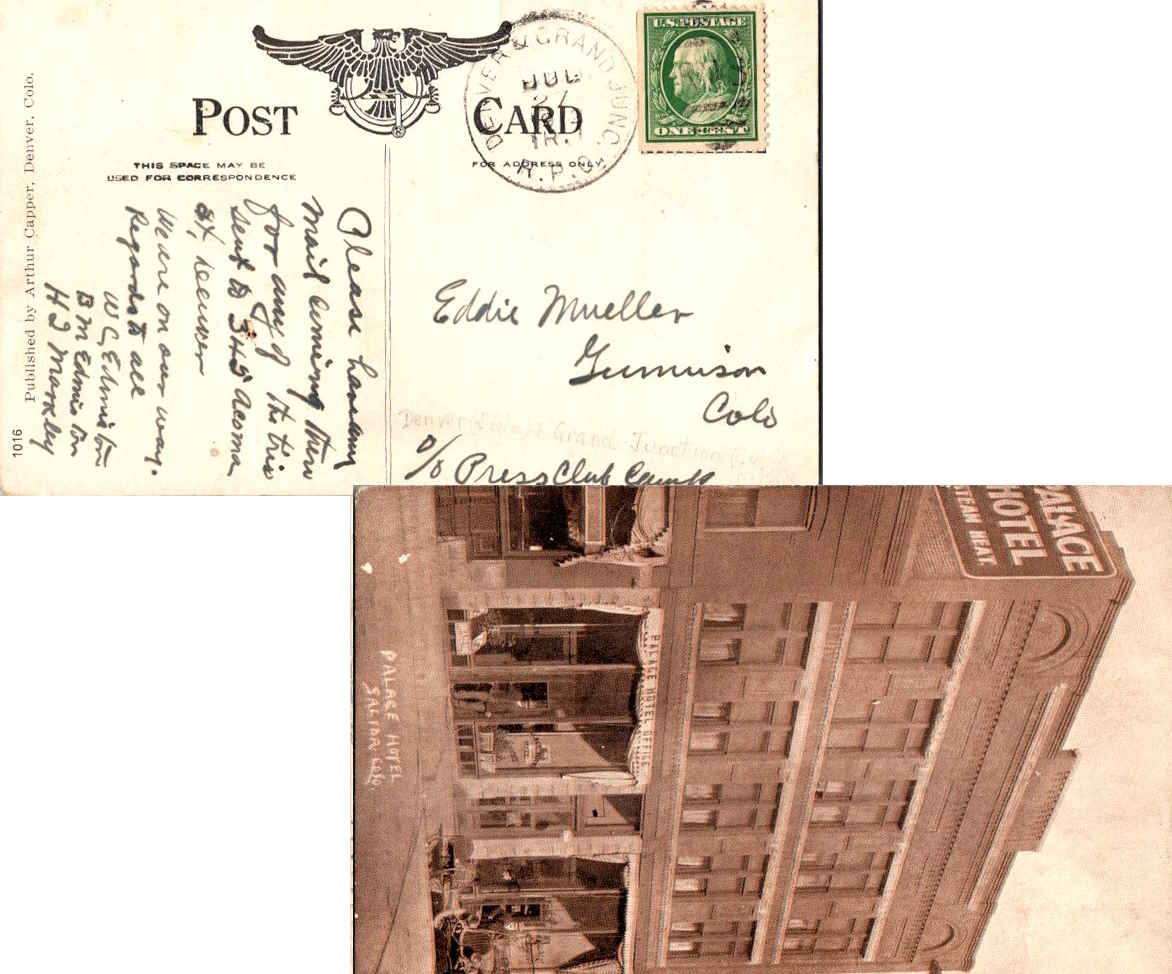 POST CARD
THIS SPACE MAY BE
USED FOR CORRESPONDENCE
FOR ADDRESS ONLY
DENVER & GRAND JUNC.
JUL
27
R.P.O.
U.S. POSTAGE
ONE CENT
Published by Arthur Capper, Denver, Colo.
1016
Please have any
mail coming there
for any of the trio
sent to 345 Acoma
st, Denver
We are on our way.
Regards to all
W C Edmiston
B M Edmiston
H J Markley
Eddie Mueller
Gunnison
Colo
Denver (Colo) & Grand Junction
c/o Press Club Camp
PALACE
HOTEL
STEAM HEAT
PALACE HOTEL OFFICE
PALACE HOTEL
SALIDA, COLO